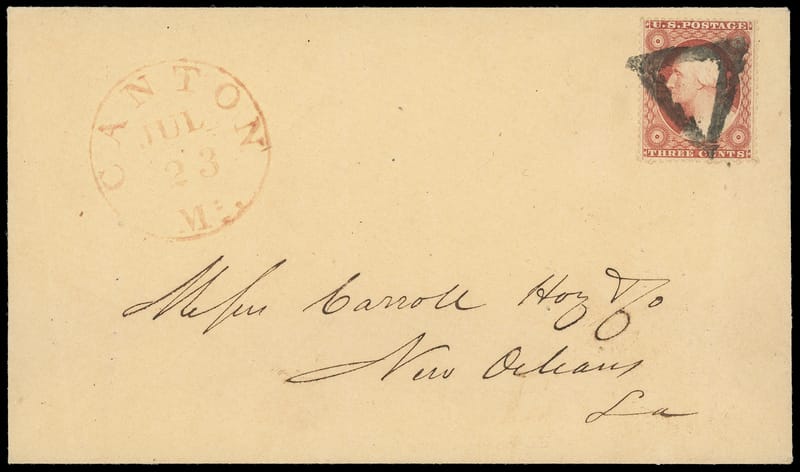 CANTON
JUL.
23
Mi.
U.S. POSTAGE
THREE CENTS
Messrs Carroll Hoy & Co
New Orleans
La